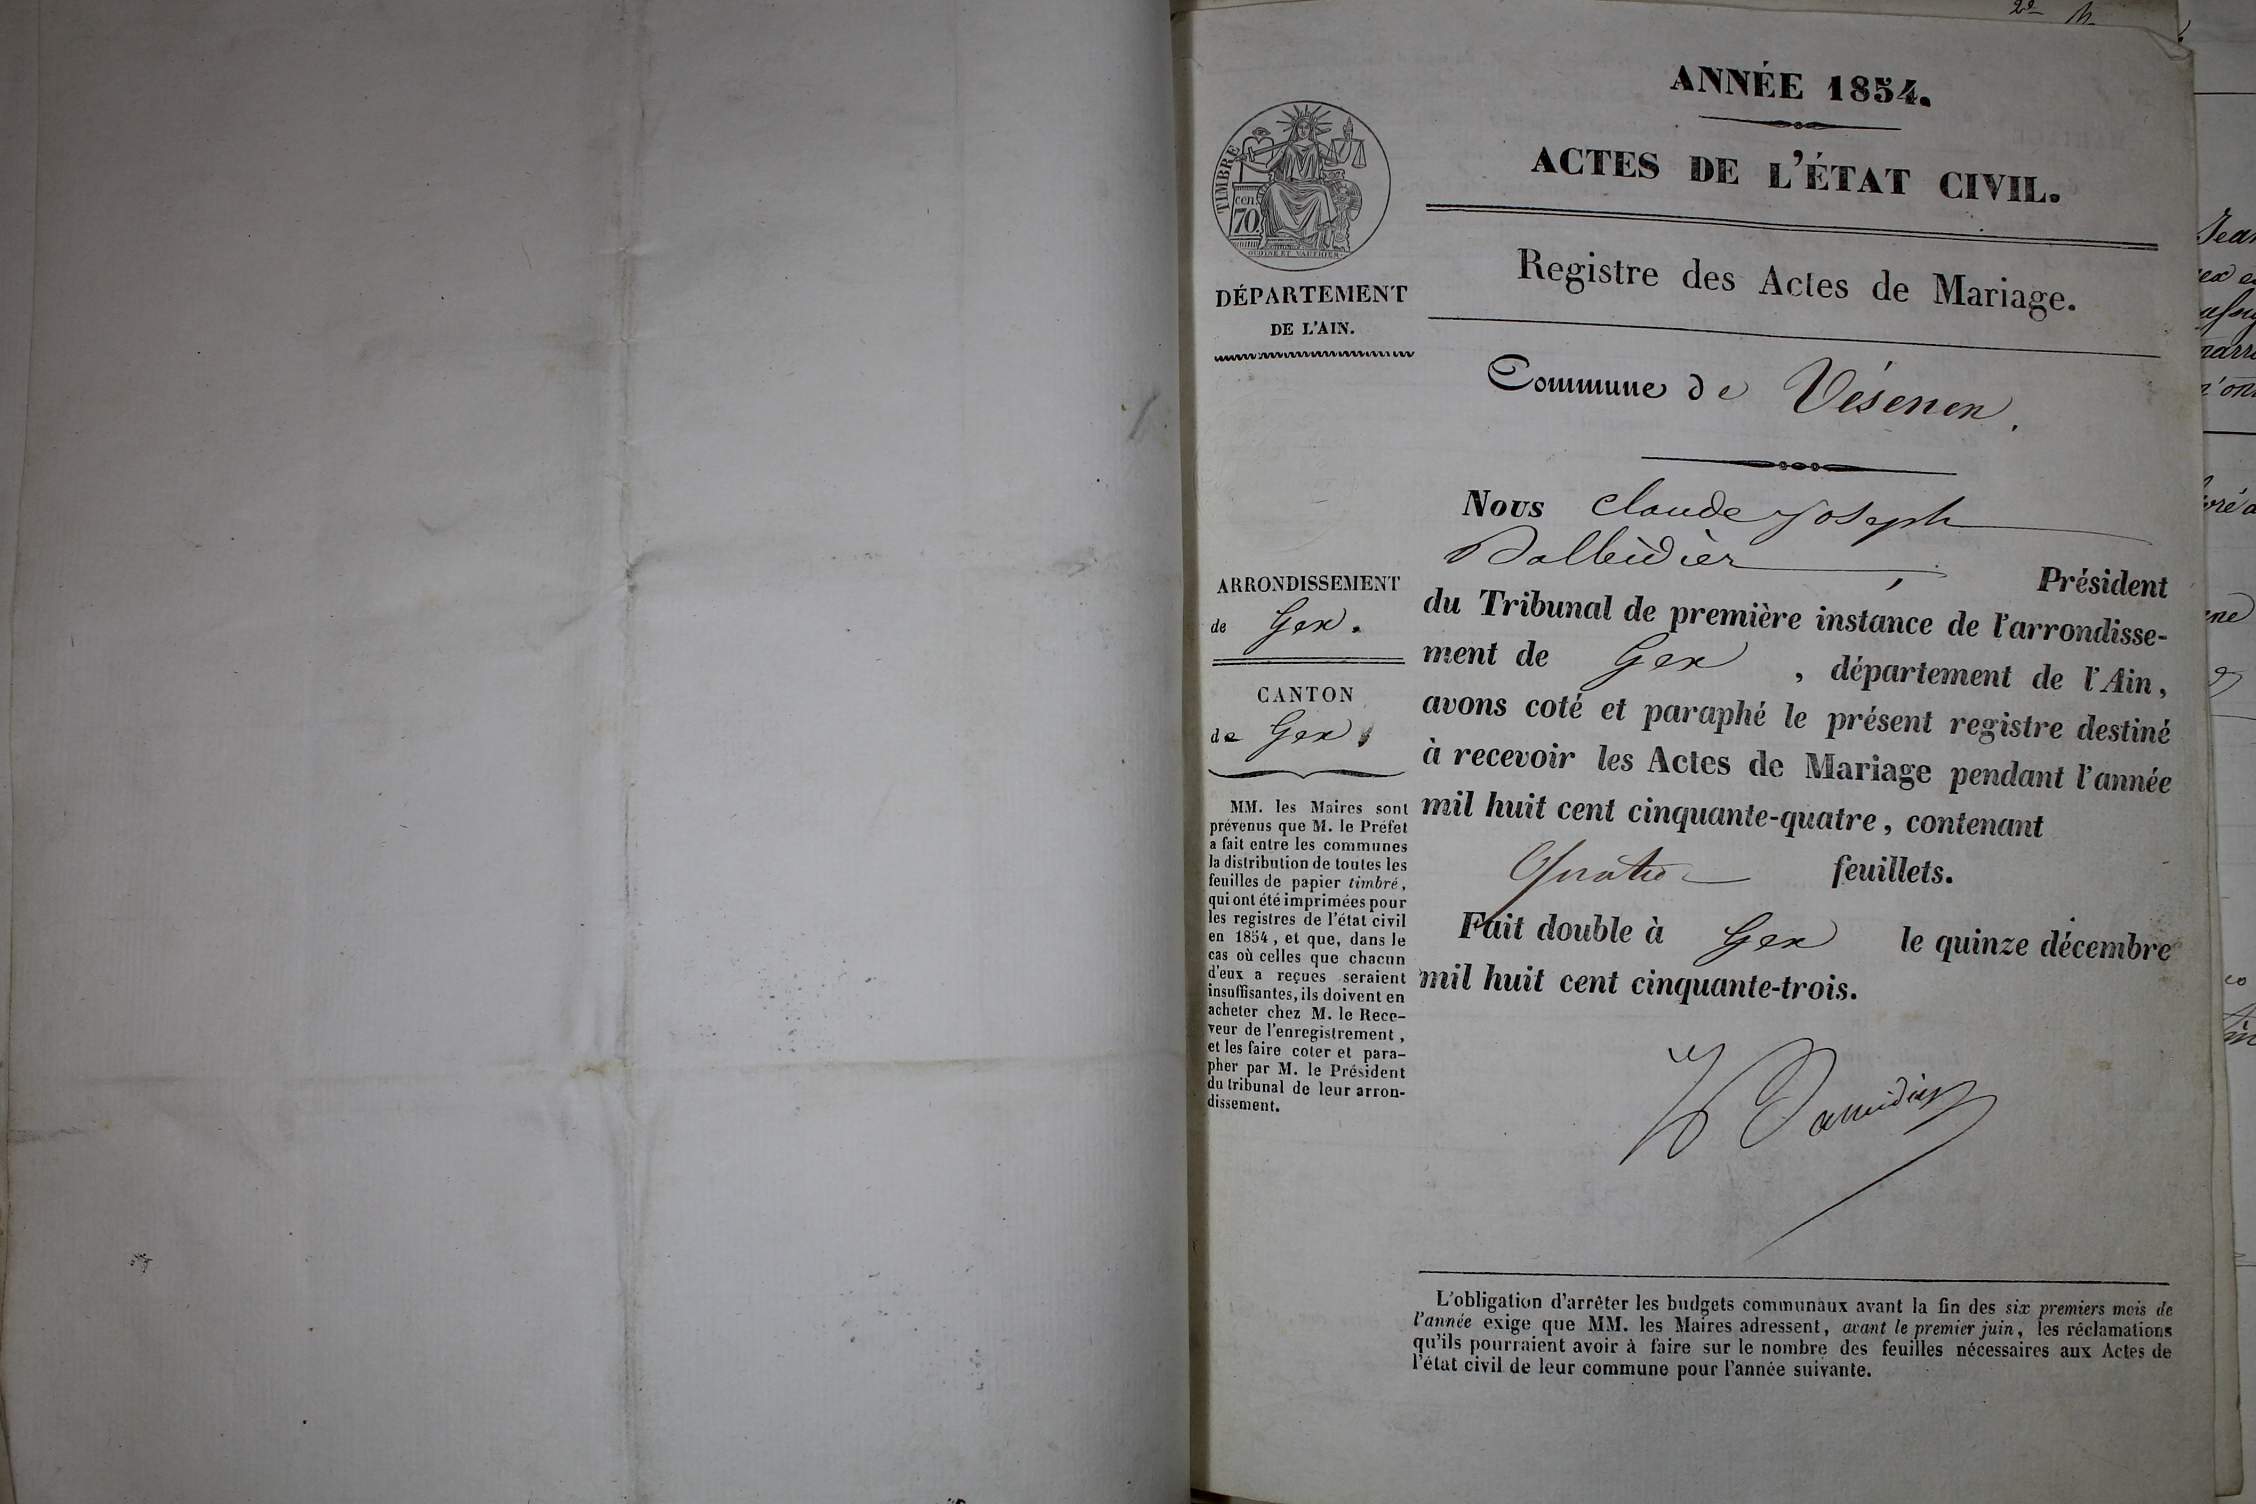 ANNÉE 1854.
ACTES DE L'ÉTAT CIVIL.
Registre des Actes de Mariage.
Commune de Vésenen.
Nous Claude Joseph
Président
du Tribunal de première instance de l'arrondisse-
ment de Gex, département de l'Ain,
avons coté et paraphé le présent registre destiné
à recevoir les Actes de Mariage pendant l'année
mil huit cent cinquante-quatre, contenant
Quatre feuillets.
Fait double à Gex le quinze décembre
mil huit cent cinquante-trois.
L'obligation d'arrêter les budgets communaux avant la fin des six premiers mois de
l'année exige que MM. les Maires adressent, avant le premier juin, les réclamations
qu'ils pourraient avoir à faire sur le nombre des feuilles nécessaires aux Actes de
l'état civil de leur commune pour l'année suivante.
TIMBRE
cen.
70.
OUDINE ET VAUTHIER
DÉPARTEMENT
DE L'AIN.
ARRONDISSEMENT
de Gex.
CANTON
de Gex
MM. les Maires sont
prévenus que M. le Préfet
a fait entre les communes
la distribution de toutes les
feuilles de papier timbré,
qui ont été imprimées pour
les registres de l'état civil
en 1854, et que, dans le
cas où celles que chacun
d'eux a reçues seraient
insuffisantes, ils doivent en
acheter chez M. le Rece-
veur de l'enregistrement,
et les faire coter et para-
pher par M. le Président
du tribunal de leur arron-
dissement.